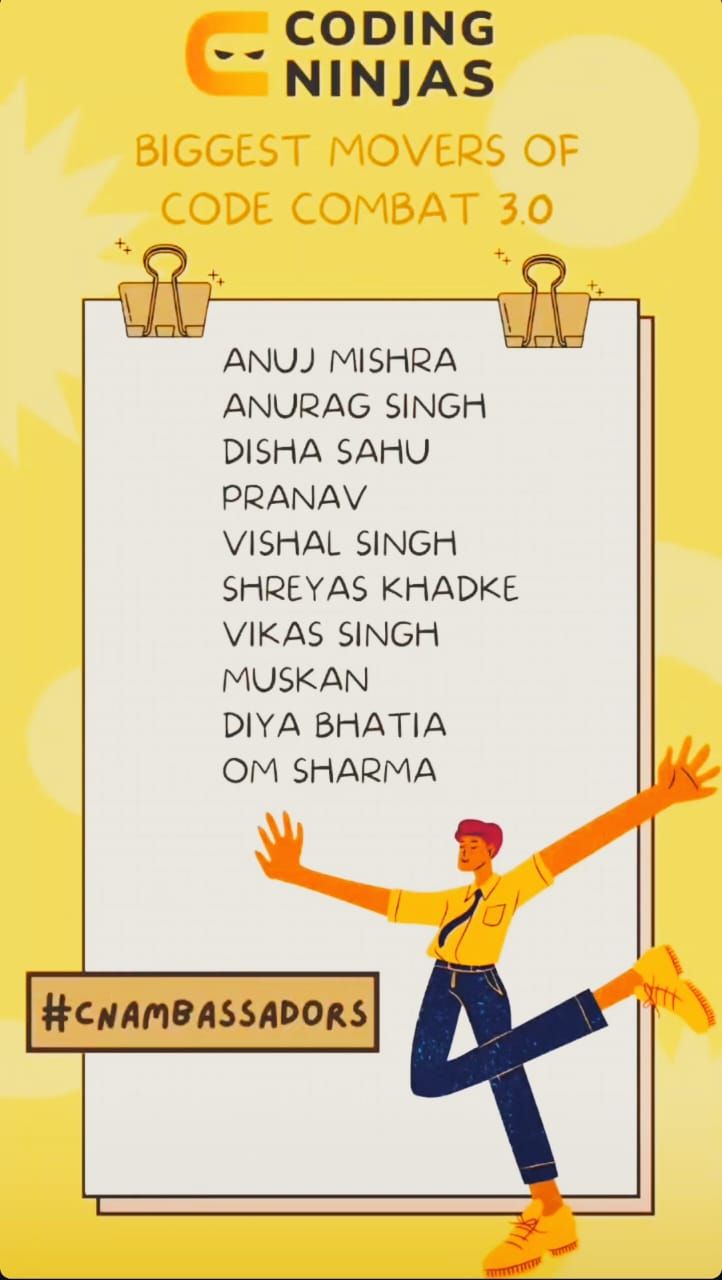 CODING
NINJAS
BIGGEST MOVERS OF
CODE COMBAT 3.0
ANUJ MISHRA
ANURAG SINGH
DISHA SAHU
PRANAV
VISHAL SINGH
SHREYAS KHADKE
VIKAS SINGH
MUSKAN
DIYA BHATIA
OM SHARMA
#CNAMBASSADORS